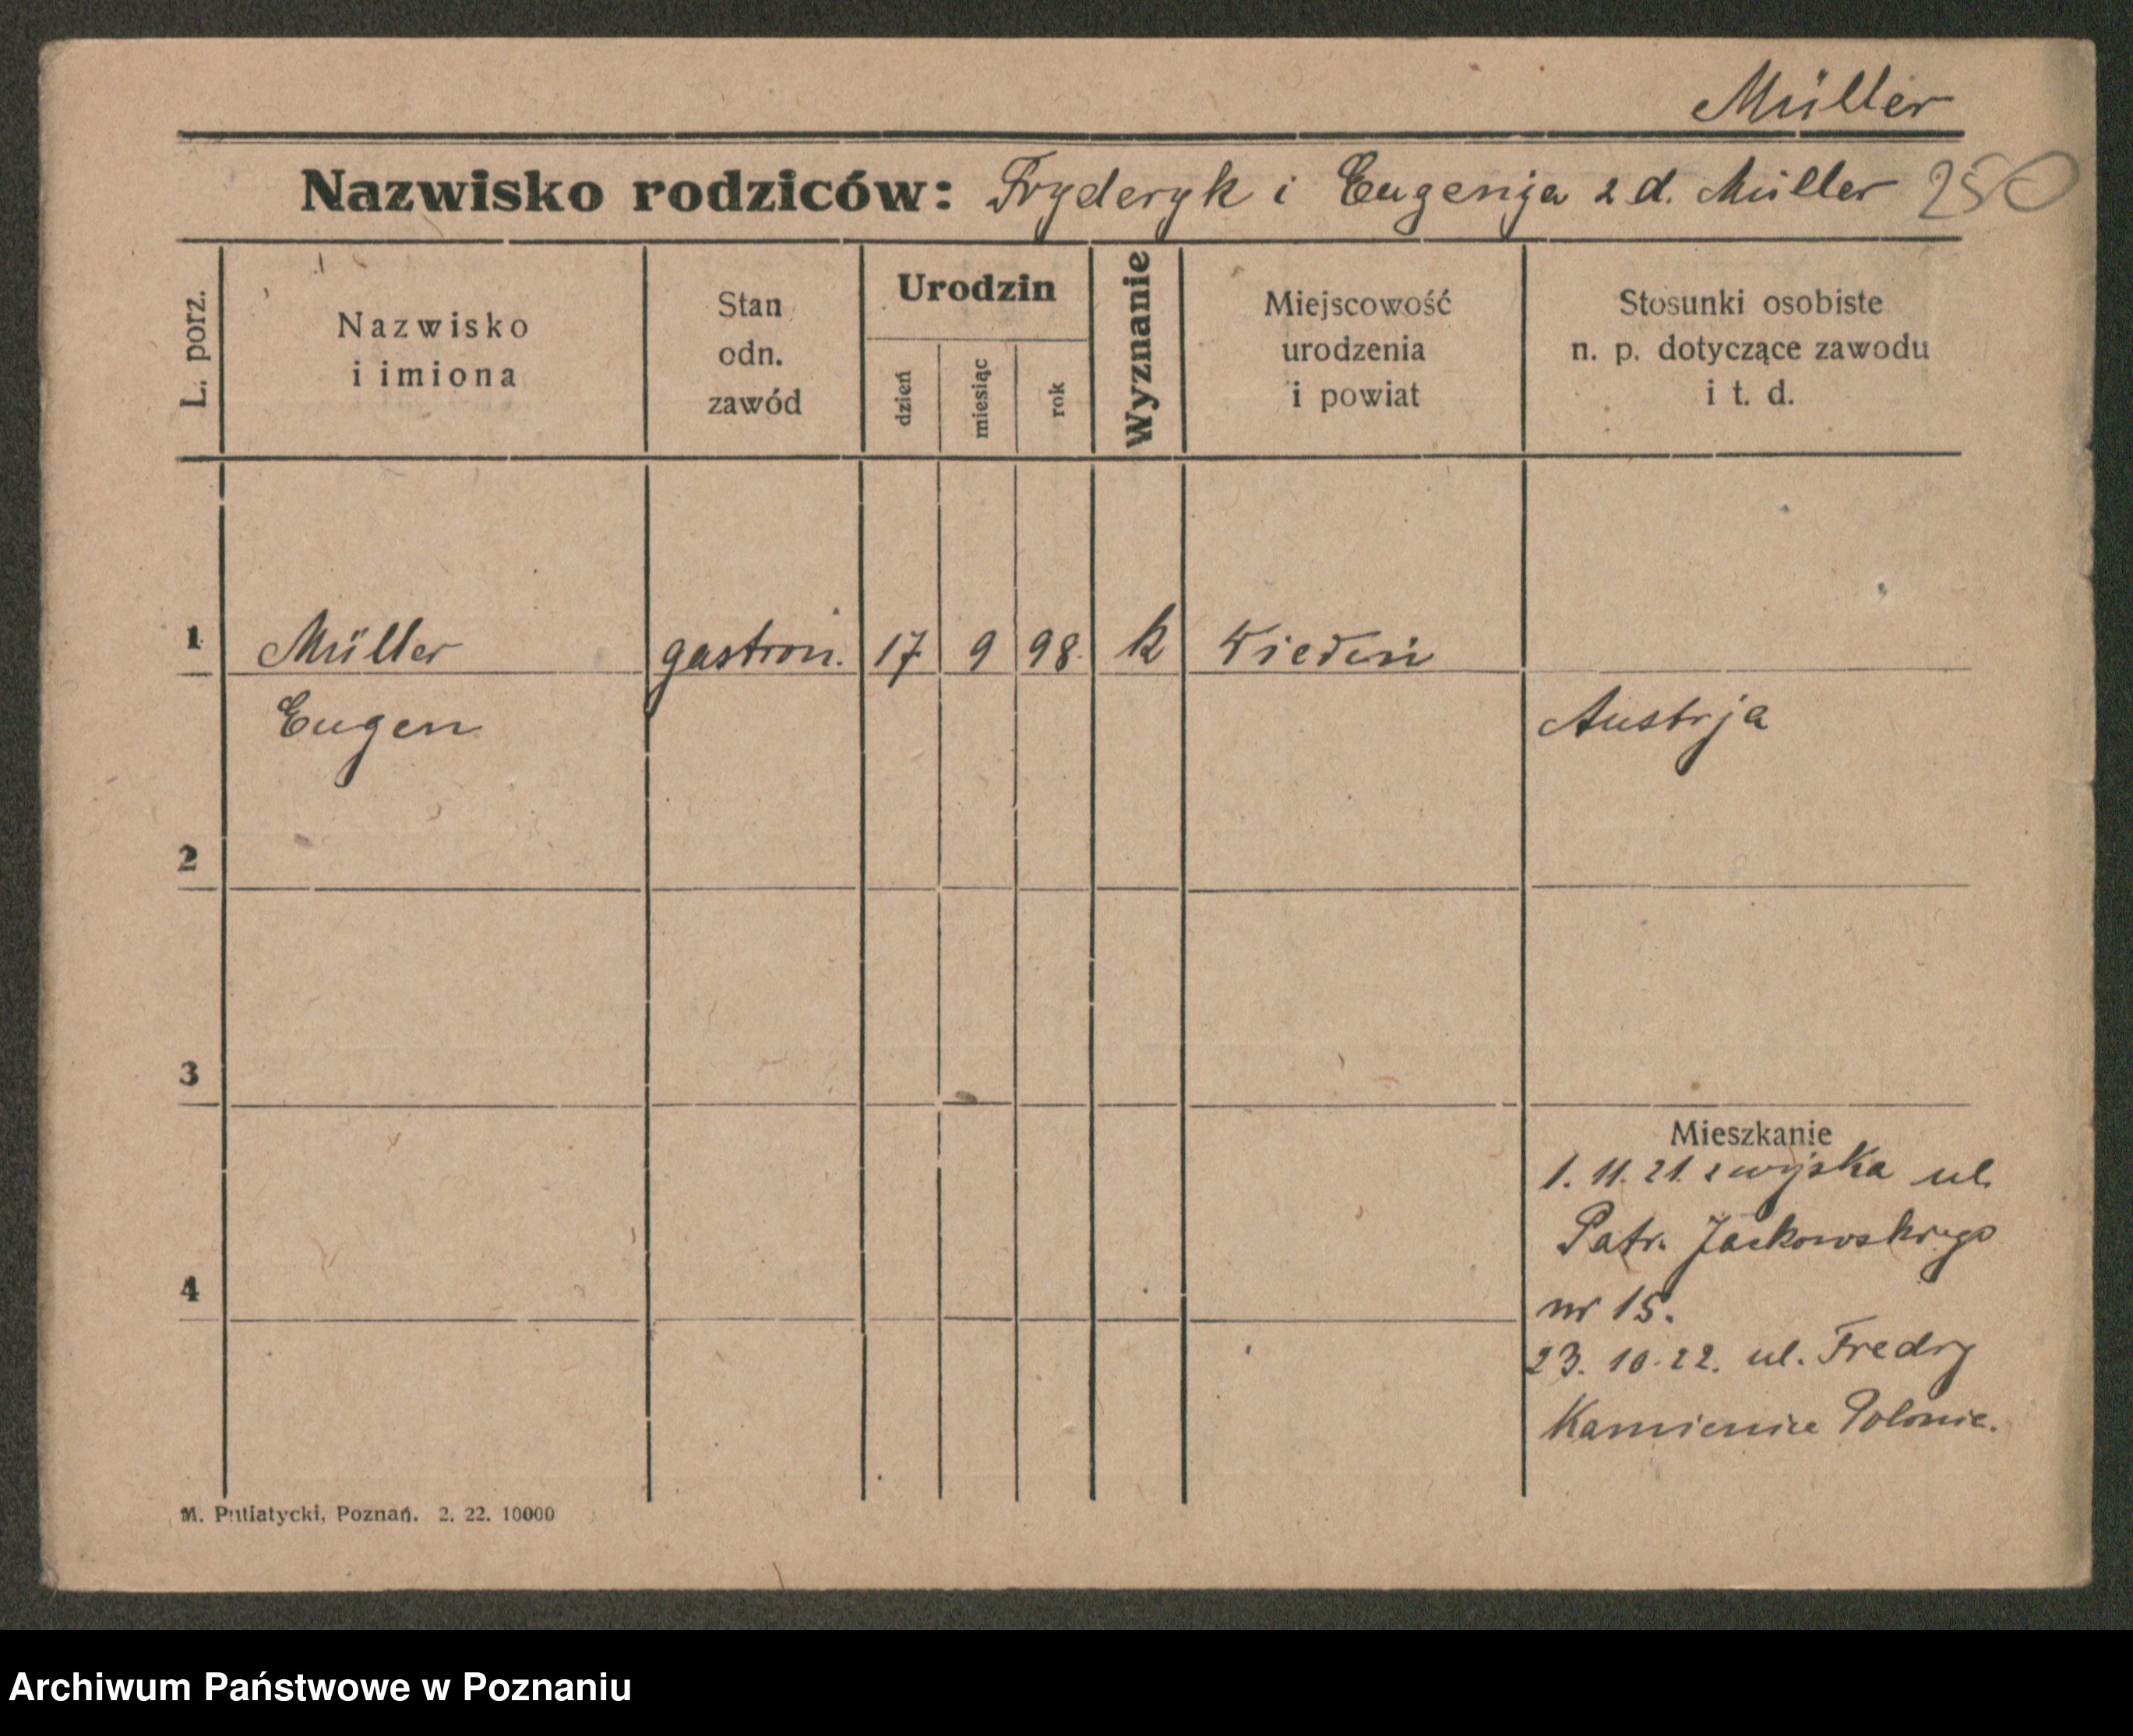 Müller
Nazwisko rodziców: Fryderyk i Eugenja z d. Müller 250
L. porz.
Nazwisko
i imiona
Stan
odn.
zawód
Urodzin
dzień
miesiąc
rok
Wyznanie
Miejscowość
urodzenia
i powiat
Stosunki osobiste
n. p. dotyczące zawodu
i t. d.
1 Müller gastron. 17 9 98. k Wiedeń
Eugen Austrja
2
3
Mieszkanie
1. 11. 21. z wojska ul.
Patr. Jackowskiego
4
nr 15.
23. 10. 22. ul. Fredry
Kamienica Polonia.
M. Putiatycki, Poznań. 2. 22. 10000
Archiwum Państwowe w Poznaniu